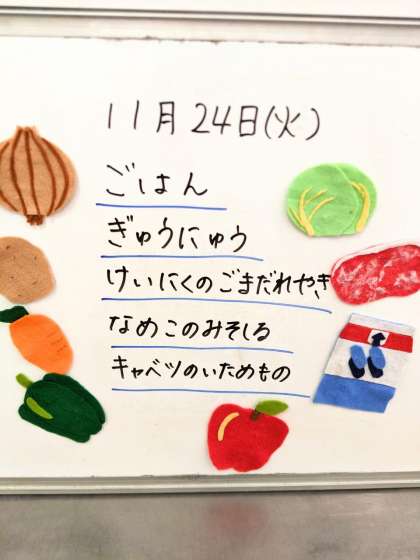 11月24日(火)
ごはん
ぎゅうにゅう
けいにくのごまだれやき
なめこのみそしる
キャベツのいためもの